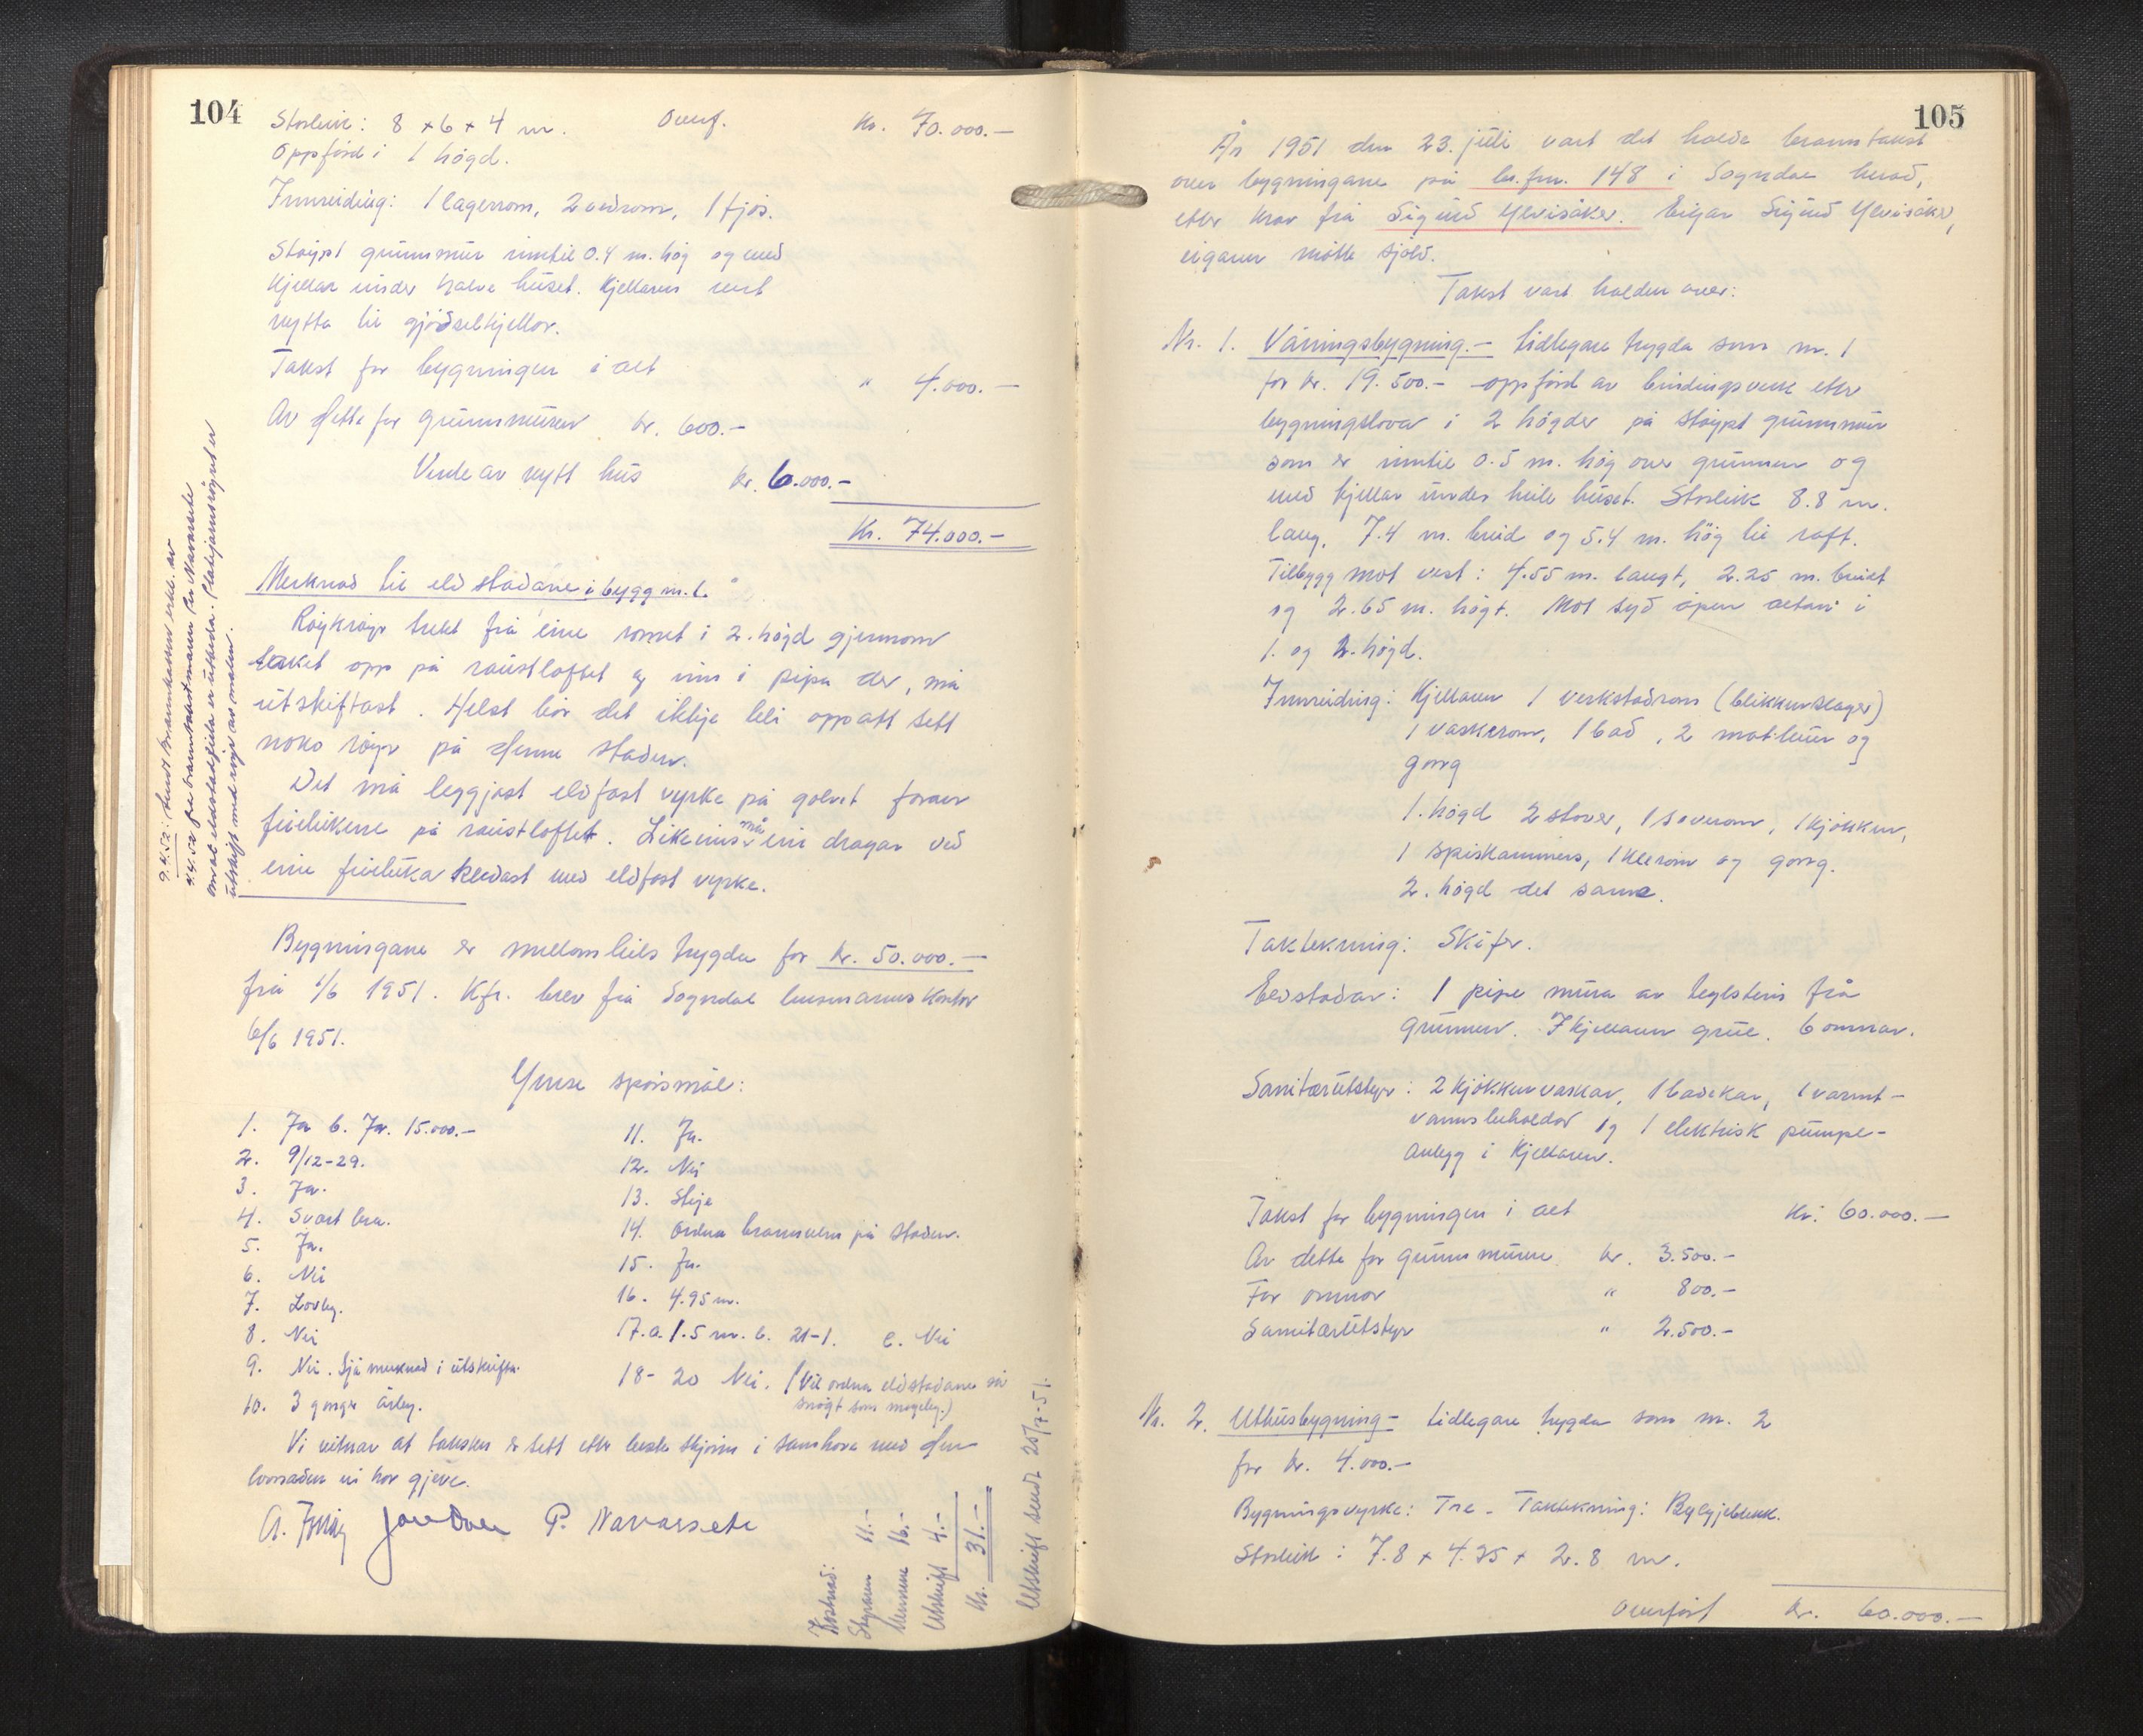 104
Storleik: 8 x 6 x 4 m. Overf. kr. 70.000.—
Oppførd i 1 høgd.
Innreiding: 1 lagerrom, 2 vedrom, 1 fjøs.
Støypt grunnmur inntil 0.4 m. høg og med
kjellar under halve huset. Kjellaren vert
nytta til gjødselkjellar.
Takst for bygningen i alt " 4.000.—
Av dette for grunnmuren kr. 600.—
Verde av nytt hus kr. 6.000.—
Kr. 74.000.—
Merknad til eldstadane i bygg nr. 1.
Røykrøyr trekt frå eine romet i 2. høgd gjennom
taket opp på raustloftet og inn i pipa der, må
utskiftast. Helst bør det ikkje bli oppatt sett
noko røyr på denne staden.
Det må leggjast eldfast vyrke på golvet framom
feielukene på raustloftet. Likeeins må ein dragar ved
eine feieluka kledast med eldfast vyrke.
Bygningane er mellombels trygda for kr. 50.000.—
frå 1/6 1951. Kfr. brev frå Sogndal lensmannskontor
6/6 1951.
Ymse spørsmål:
1. Ja b. Ja. 15.000.—
2. 9/12-29.
3. Ja.
4. Svært bra.
5. Ja.
6. Nei
7. Lovleg.
8. Nei
9. Nei. Sjå merknad i utskrifta.
10. 3 gonger årleg.
11. Ja.
12. Nei
13. Stige
14. Ordna brannvern på staden.
15. Ja.
16. 4.95 m.
17. a. 1.5 m. b. 21-1. c. Nei
18-20 Nei. (Vil ordna eldstadane så
snøgt som mogeleg.)
Vi vitnar at taksten er sett etter beste skjønn i samhøve med den
lovnaden vi har gjeve.
P. Navarsete
Kostnad:
Styraren 11.—
Mennene 16.—
Utskrift 4.—
Kr. 31.—
Utskrift sendt 25/7-51.
9.4.52: Sendt Brannkassen erkl. av
4.4.52 frå branntakstmann Per Navarsete
om at eldstadfeila er utbetra.
utskift med røyr av malm.
105
År 1951 den 23. juli vart det halde branntakst
over bygningane på br.fnr. 148 i Sogndal herad,
etter krav frå Sigurd Ylvisåker. Eigar Sigurd Ylvisåker,
eigaren møtte sjølv.
Takst vart halden over:
Nr. 1. Våningsbygning.— tidlegare trygda som nr. 1
for kr. 19.500.— oppførd av bindingsverk etter
bygningslova i 2 høgder på støypt grunnmur
som er inntil 0.5 m. høg over grunnen og
med kjellar under heile huset. Storleik 8.8 m.
lang, 7.4 m. breid og 5.4 m. høg til raft.
Tilbygg mot vest: 4.55 m. langt, 2.25 m. breidt
og 2.65 m. høgt. Mot syd open altan i
1. og 2. høgd.
Innreiding: Kjellaren 1 verkstadrom (blikkenslager)
1 vaskerom, 1 bad, 2 matbuer og
gong
1. høgd 2 stover, 1 soverom, 1 kjøkken,
1 spiskammers, 1 klerom og gong.
2. høgd det same.
Taktekning: Skifer.
Eldstadar: 1 pipe mura av teglstein frå
grunnen. I kjellaren grue. 6 omnar.
Sanitærutstyr: 2 kjøkkenvaskar, 1 badekar, 1 varmt-
vannsbeholdar og 1 elektrisk pumpe-
anlegg i kjellaren.
Takst for bygningen i alt kr. 60.000.—
Av dette for grunnmuren kr. 3.500.—
For omnar " 800.—
Sanitærutstyr " 2.500.—
Nr. 2. Uthusbygning— tidlegare trygda som nr. 2
for kr. 4.000.—
Bygningsvyrke: Tre. Taktekning: Bylgjeblekk.
Storleik: 7.8 x 4.35 x 2.8 m.
Overført kr. 60.000.—